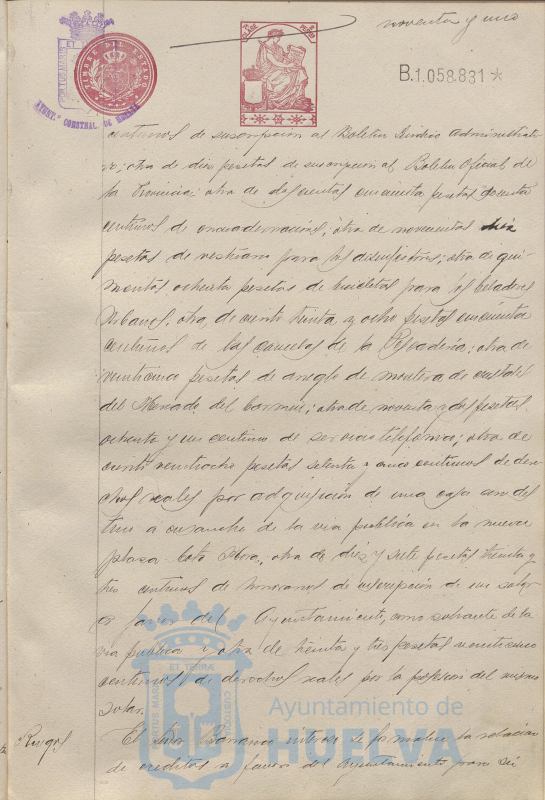 noventa y uno
B.1.058.831 *
TIMBRE DEL ESTADO
AYUNT.º CONSTNAL. DE HUELVA
centimos de suscripción al Boletin Jurídico Administrati-
vo; otra de diez pesetas de suscripción al Boletin Oficial de
la Provincia; otra de doscientas cincuenta pesetas
centimos de encuadernaciones; otra de novecientas diez
pesetas de vestuario para los desinfectores; otra de qui-
nientas ochenta pesetas de bicicletas para los Celadores
Urbanos; otra de ciento treinta y ocho pesetas cincuenta
centimos de las cancelas de la Pescadería; otra de
veinticinco pesetas de arreglo de montera de cristales
del Mercado del Carmen; otra de noventa y dos pesetas
ochenta y un centimo de servicio telefónico; otra de
ciento veintiocho pesetas setenta y cinco centimos de dere-
chos reales por adquisición de una casa con des
tino a ensanche de la via publica en la nueva
plaza Coto Mora; otra de diez y siete pesetas treinta y
tres centimos de honorarios de inscripción de un solar
a favor del Ayuntamiento, como sobrante de la
via publica y otra de treinta y tres pesetas veinticinco
centimos de derechos reales por la posesion del mismo
solar.
Ruegos
El Señor Barranco interesa se formalice la relacion
de creditos a favor del Ayuntamiento para su
PORTUS MARIS ET TERRAE CUSTODIA
Ayuntamiento de
HUELVA